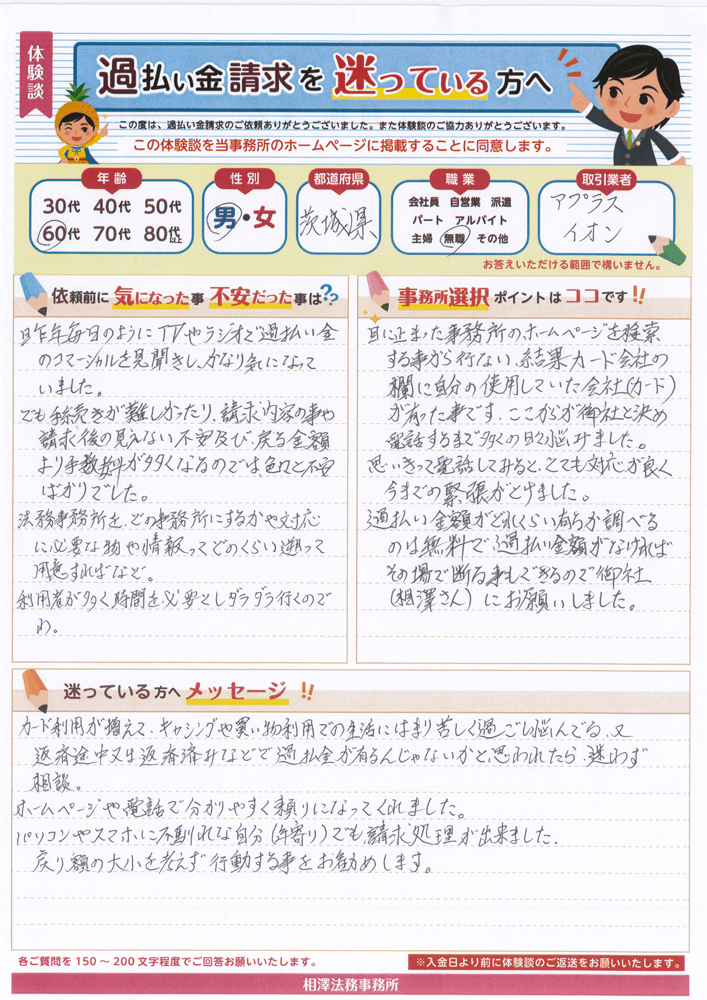 体験談
過払い金請求を迷っている方へ
この度は、過払い金請求のご依頼ありがとうございました。また体験談のご協力ありがとうございます。
この体験談を当事務所のホームページに掲載することに同意します。
年齢
30代 40代 50代
60代 70代 80代以上
性別
男・女
都道府県
茨城県
職業
会社員 自営業 派遣
パート アルバイト
主婦 無職 その他
取引業者
アプラス
イオン
お答えいただける範囲で構いません。
依頼前に気になった事 不安だった事は??
昨年毎日のようにTVやラジオで過払い金
のコマーシャルを見聞きし、かなり気になって
いました。
でも手続きが難しかったり、請求内容の事や
請求後の見えない不安及び、戻る金額
より手数料が多くなるのでは色々と不安
ばかりでした。
法務事務所を、どの事務所にするかや対応
に必要な物や情報ってどのくらい遡って
用意すればなど。
利用者が多く時間を必要としダラダラ行くので
わ。
事務所選択ポイントはココです!!
目に止まった事務所のホームページを検索
する事から行ない、結果カード会社の
欄に自分の使用していた会社(カード)
が有った事です、ここからが御社と決め
電話するまで多くの日々悩みました。
思いきって電話してみると、とても対応が良く
今までの緊張がとけました。
過払い金額がどれくらい有るか調べる
のは無料で、過払い金額がなければ
その場で断る事もできるので御社
(相澤さん)にお願いしました。
迷っている方へメッセージ!!
カード利用が増えて、キャシングや買い物利用での生活にはまり苦しく過ごし悩んでる、又
返済途中又は返済済みなどで過払金が有るんじゃないかと思われたら、迷わず
相談。
ホームページや電話で分かりやすく頼りになってくれました。
パソコンやスマホに不馴れな自分(年寄り)でも請求処理が出来ました、
戻り額の大小を考えず行動する事をお勧めします。
各ご質問を150～200文字程度でご回答お願いいたします。
※入金日より前に体験談のご返送をお願いいたします。
相澤法務事務所